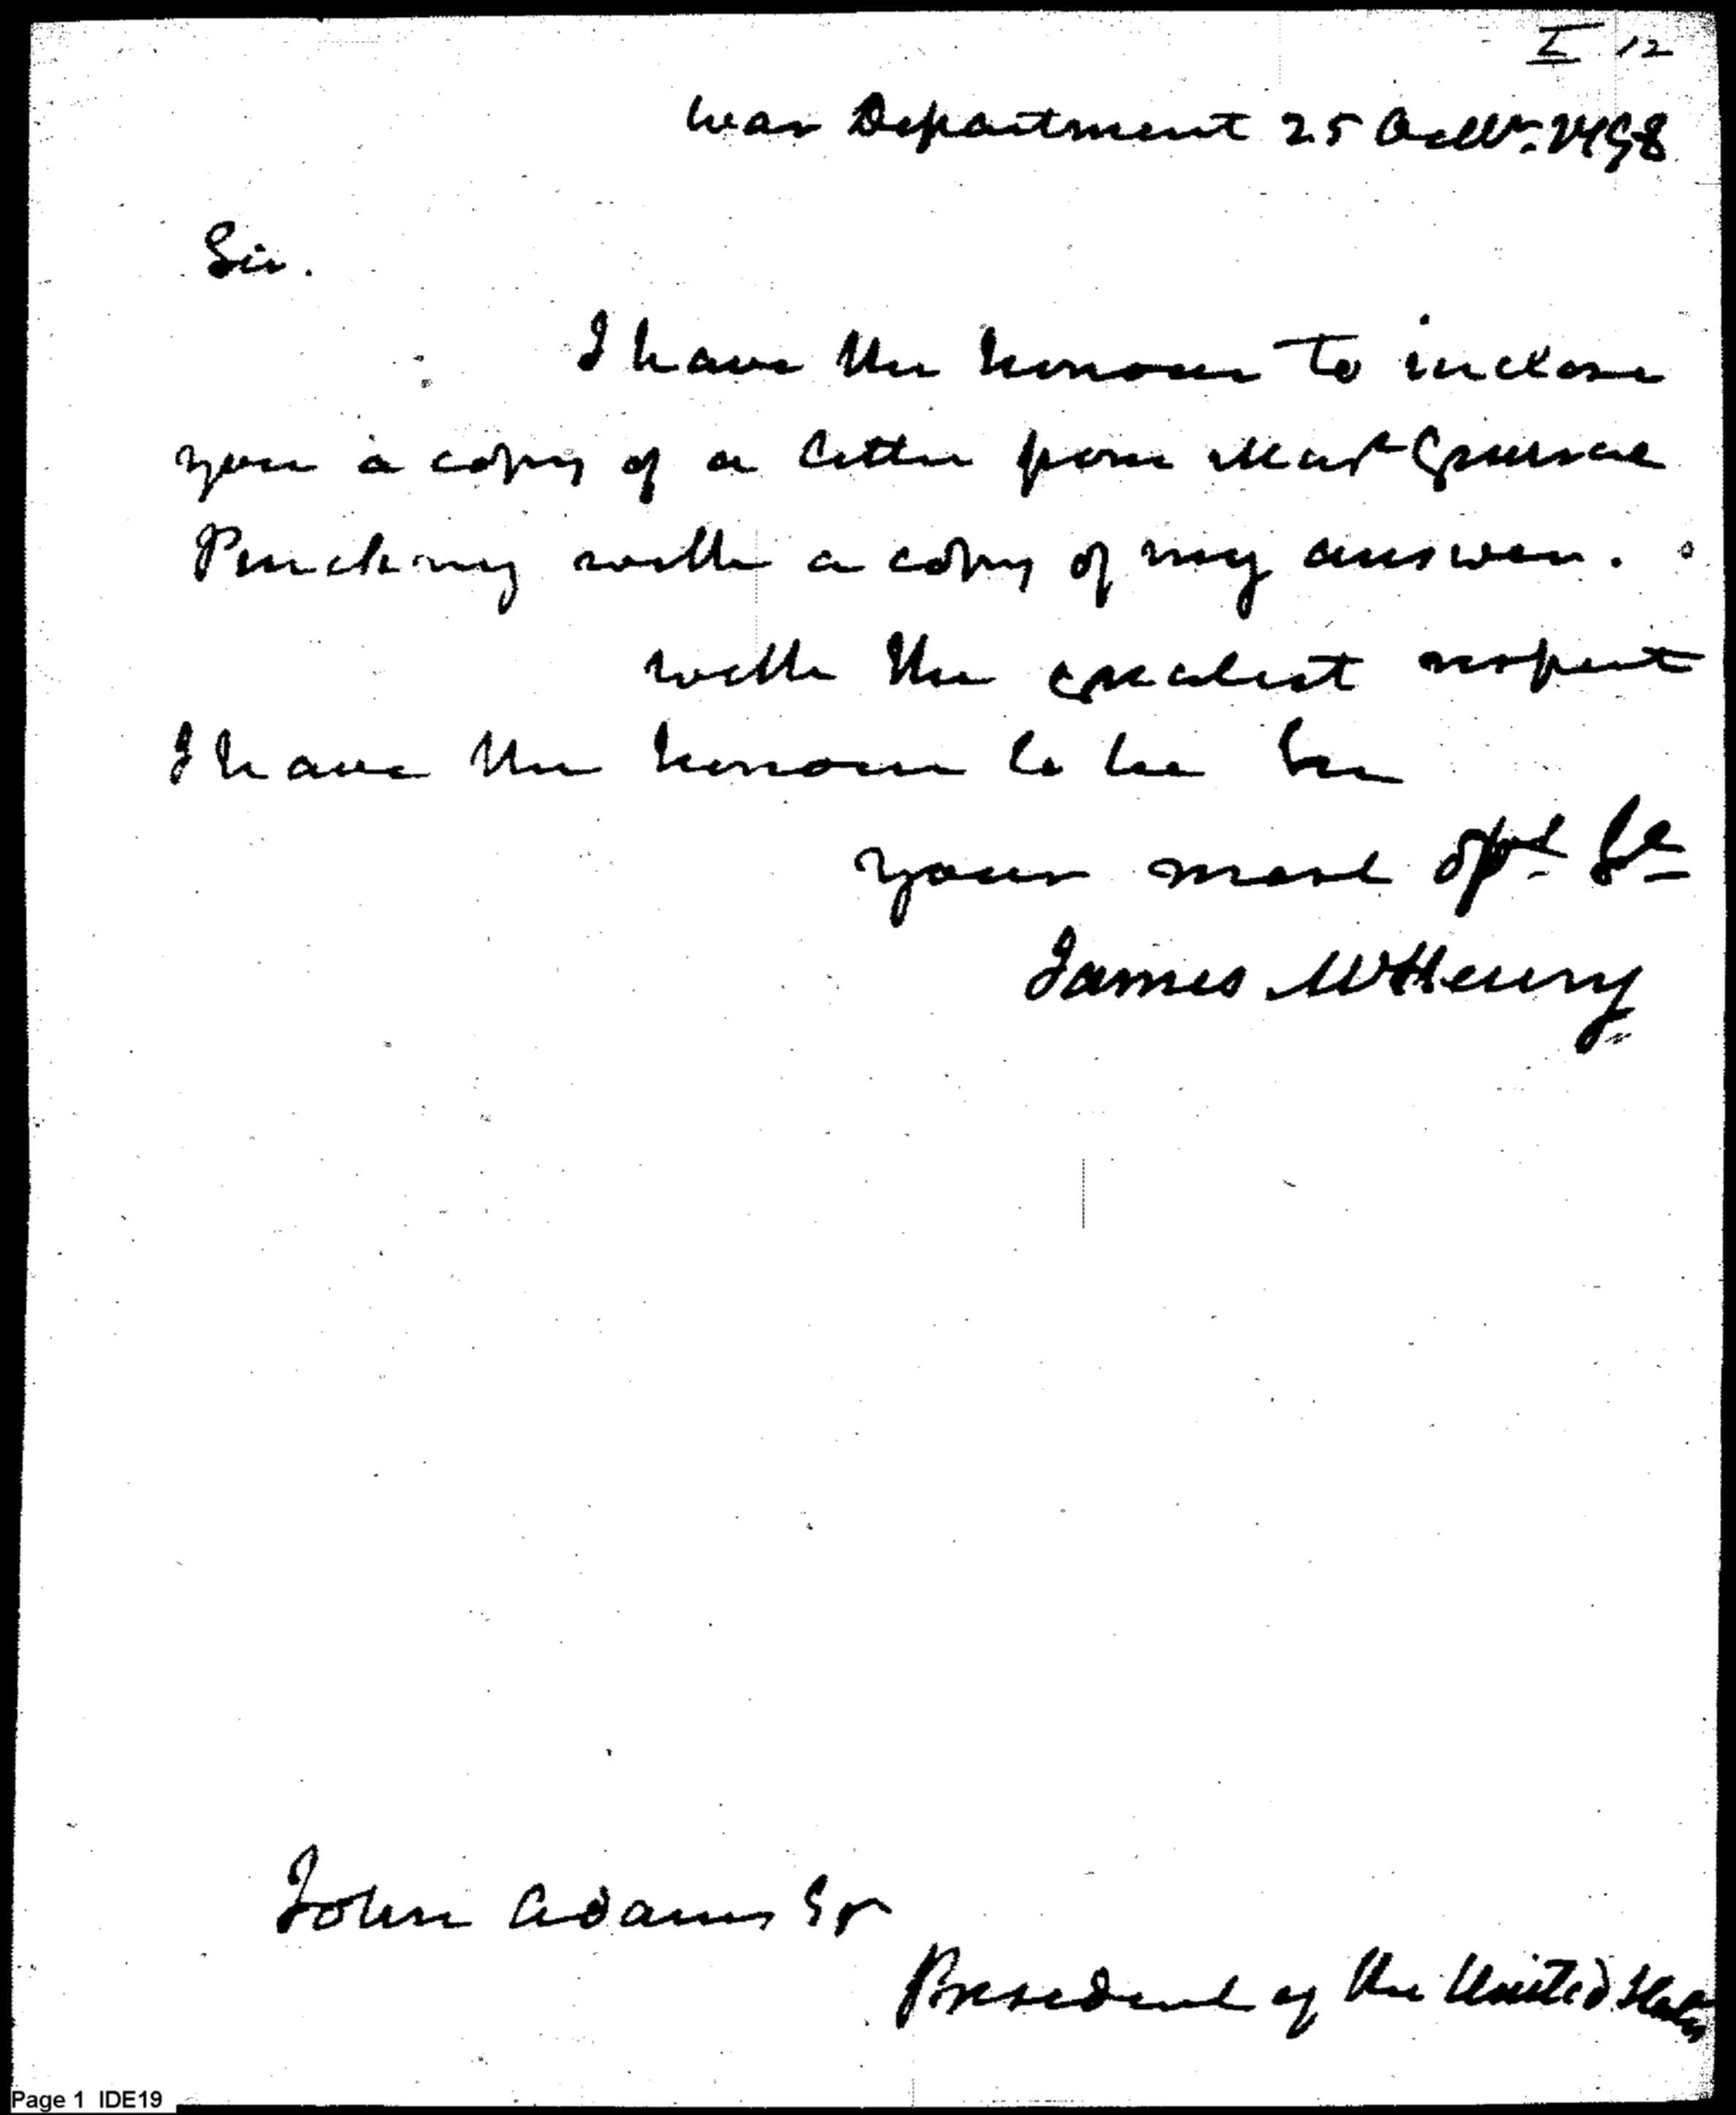 I 12
War Department 25 Octbr. 1798
Sir.
I have the honour to inclose
you a copy of a letter from Majr General
Pinckney with a copy of my answer.
with the greatest respect
I have the honour to be Sir
your most obt St
James McHenry
John Adams Esr
President of the United States
Page 1 IDE19